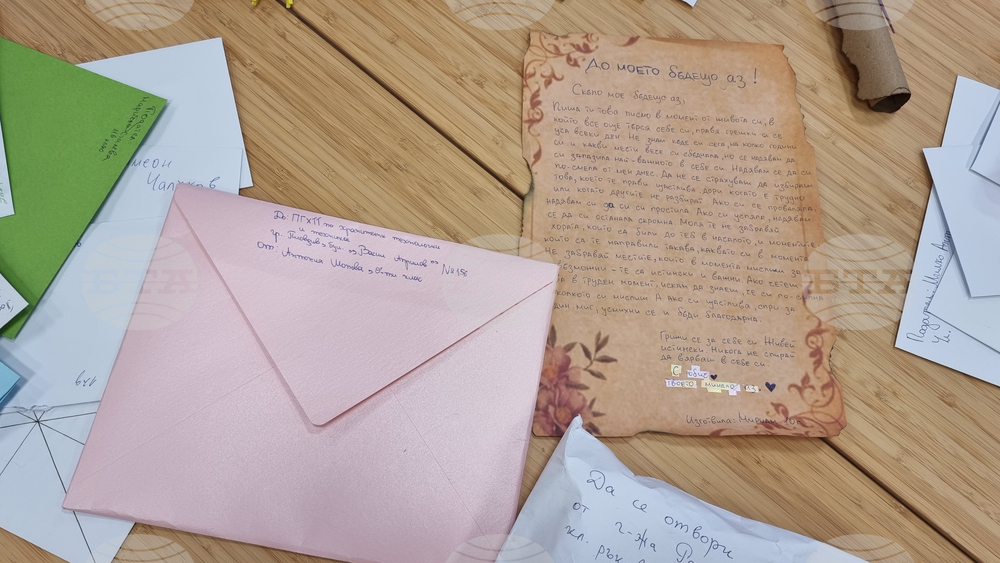 До моето бъдещо аз!
Скъпо мое бъдещо аз,
Пиша ти това писмо в момент от живота си, в
който все още търся себе си, правя грешки и се
уча всеки ден. Не знам къде си сега, на колко години
си и какви мечти вече си сбъднала, но се надявам да
си запазила най-важното в себе си. Надявам се да си
по-смела от мен днес. Да не се страхуваш да избираш
това, което те прави щастлива дори когато е трудно
или когато другите не разбират. Ако си се провалила,
надявам си да си си простила. Ако си успяла, надявам
се да си останала скромна. Моля те не забравяй
хората, които са били до теб в началото, и моментите
които са те направили такава, каквато си в момента
Не забравяй мечтите, които в момента мислиш за
възможни - те са истински и важни. Ако четеш
в труден момент, искам да знаеш, ти си по-силна
колкото си мислиш. А ако си щастлива, спри за
един миг, усмихни се и бъди благодарна.
Грижи се за себе си. Живей
истински. Никога не спирай
да вярваш в себе си.
С обич
твоето минало аз
Изготвила: Мириам 10
До: ПГХТТ по хранителни технологии
и техника
гр. Пловдив, бул. "Васил Априлов" № 156
От:
клас
Чалъков
Да се отвори
от г-жа
кл. рък
BTA